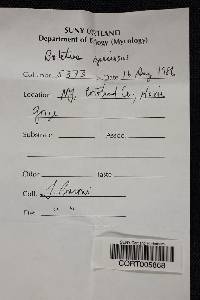 SUNY CORTLAND
Department of Biology (Mycology)
Boletus
Coll. No. 5373 Date 16 Aug 1986
Location NY, Cortland Co.,
Substrate Assoc.
Odor Taste
Coll. J. Baroni
Det. " "
CORT005868